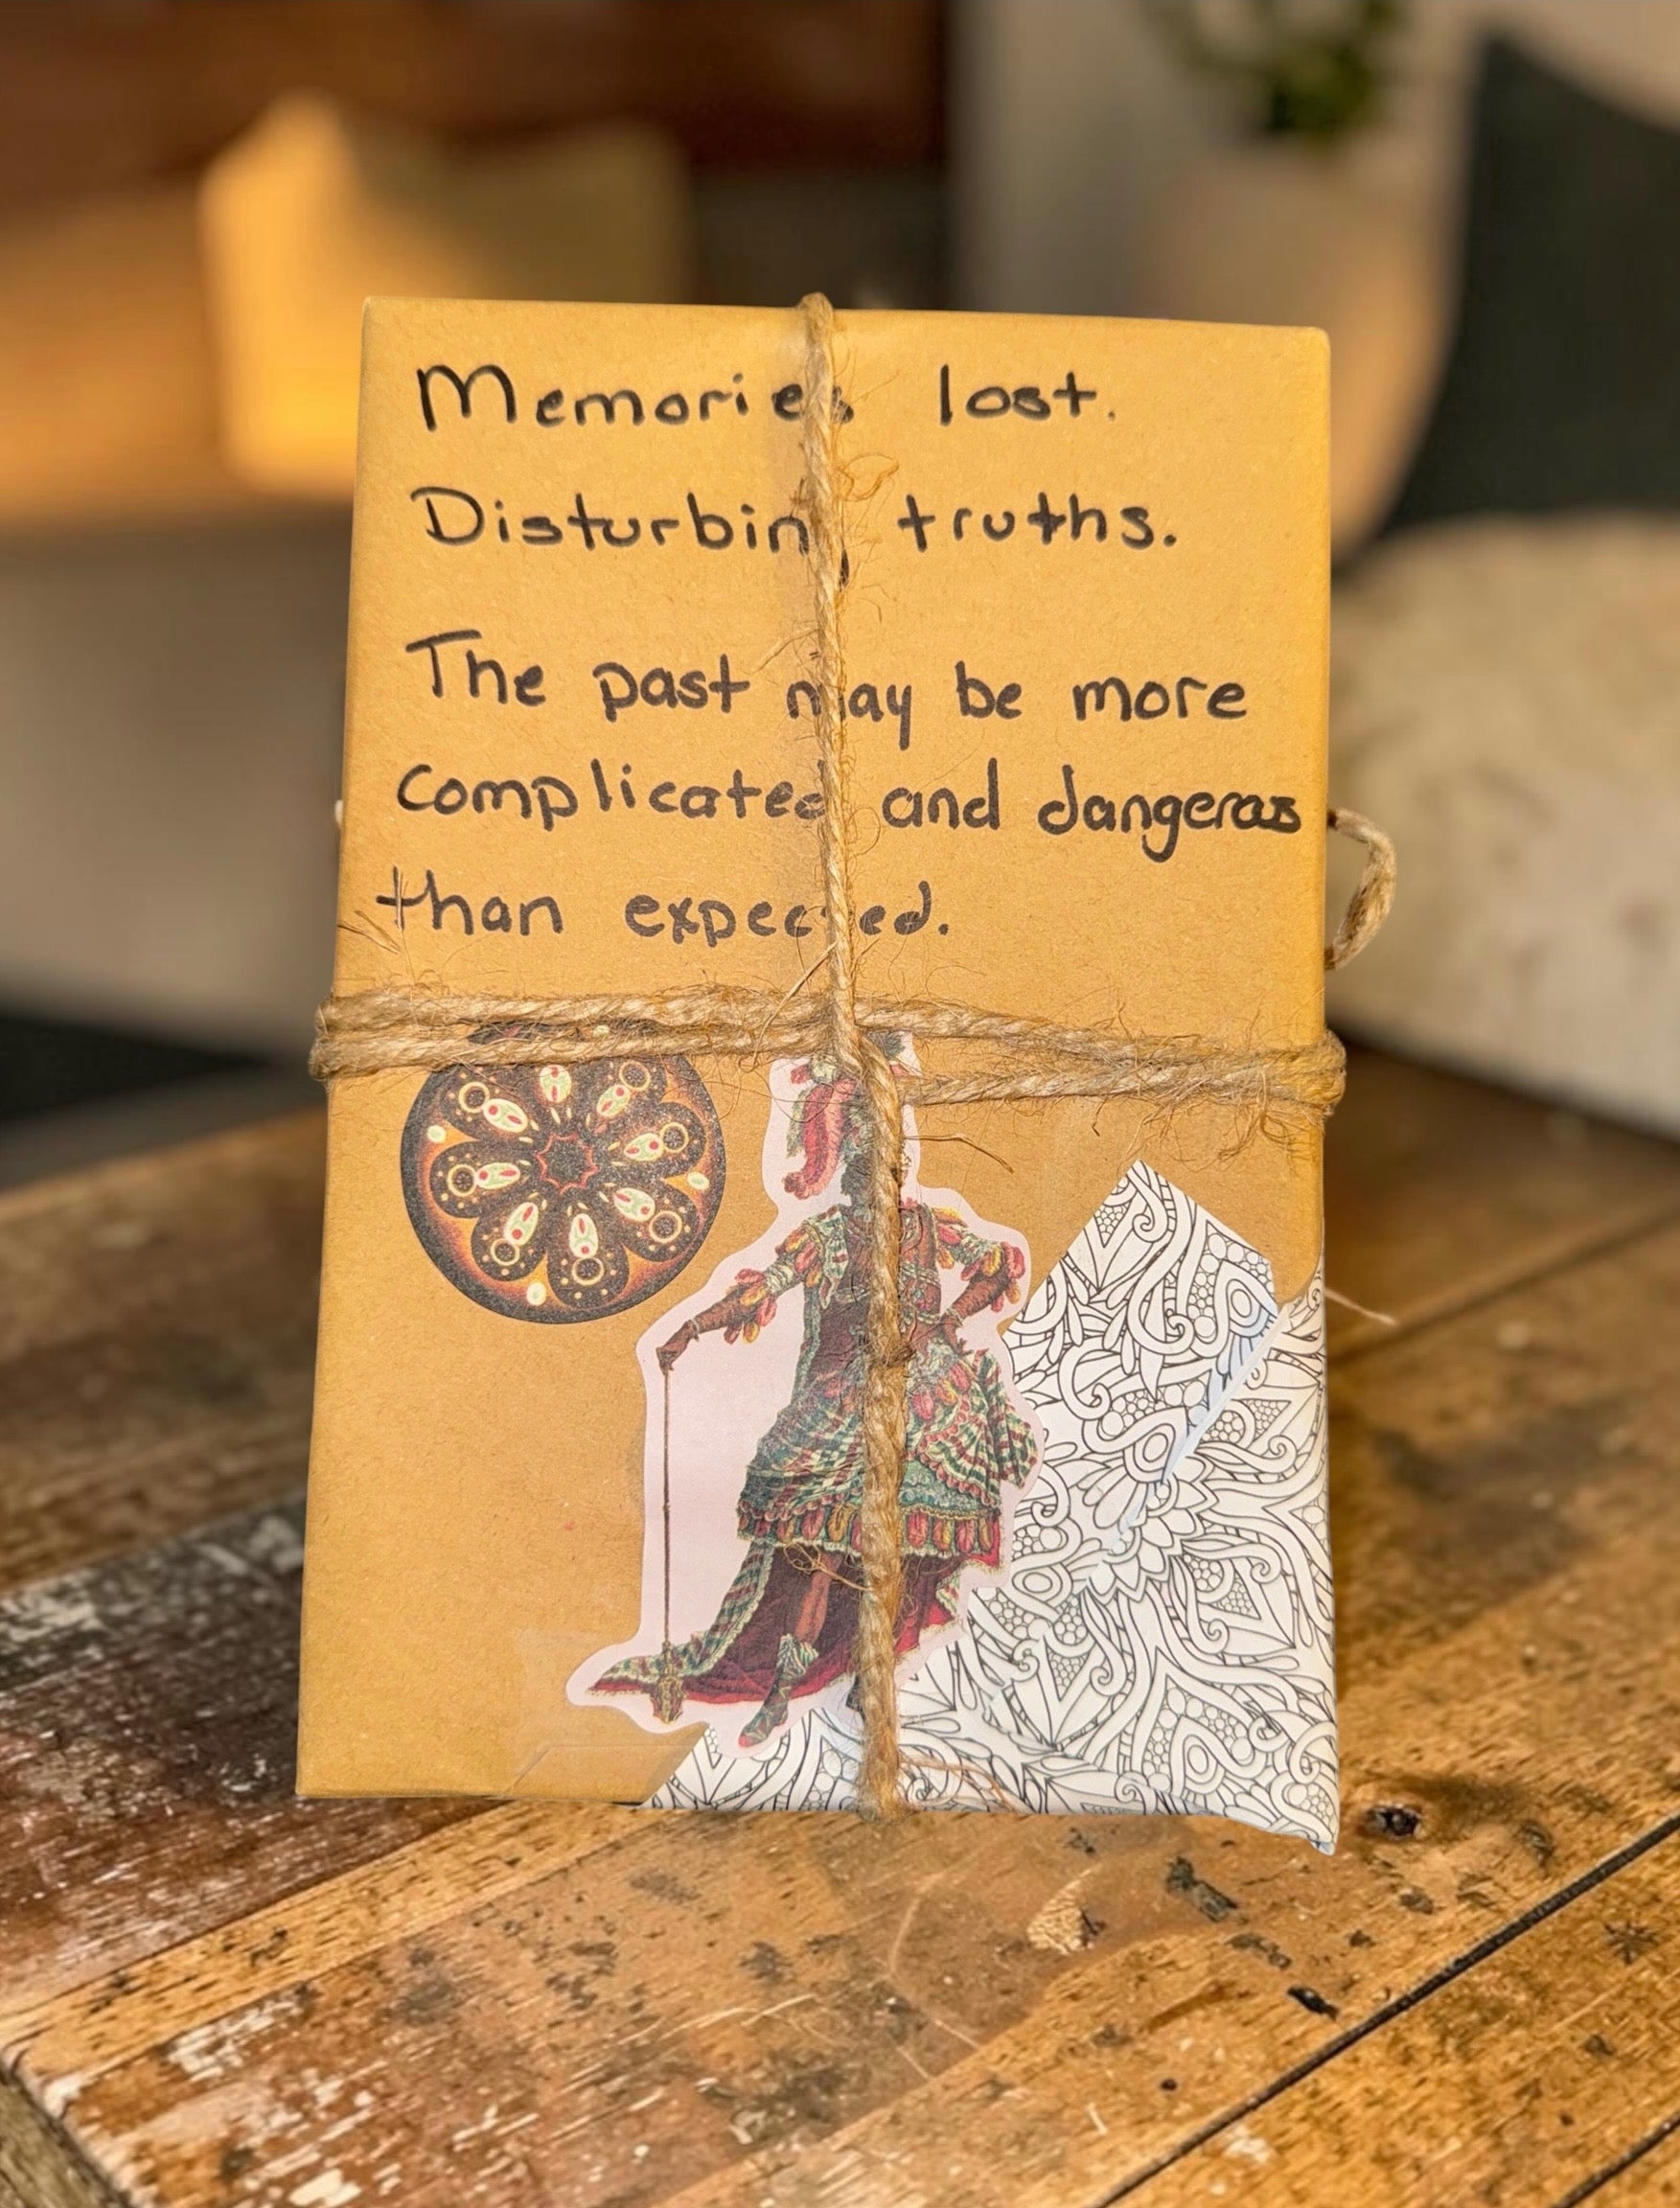 Memories lost.
Disturbing truths.
The past may be more
complicated and dangerous
than expected.